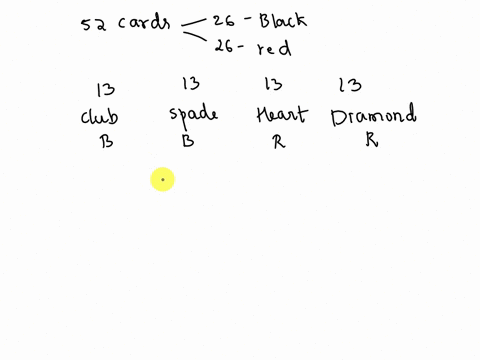 52 cards 26 - Black
26 - red
13 13 13 13
club spade Heart Diamond
B B R R